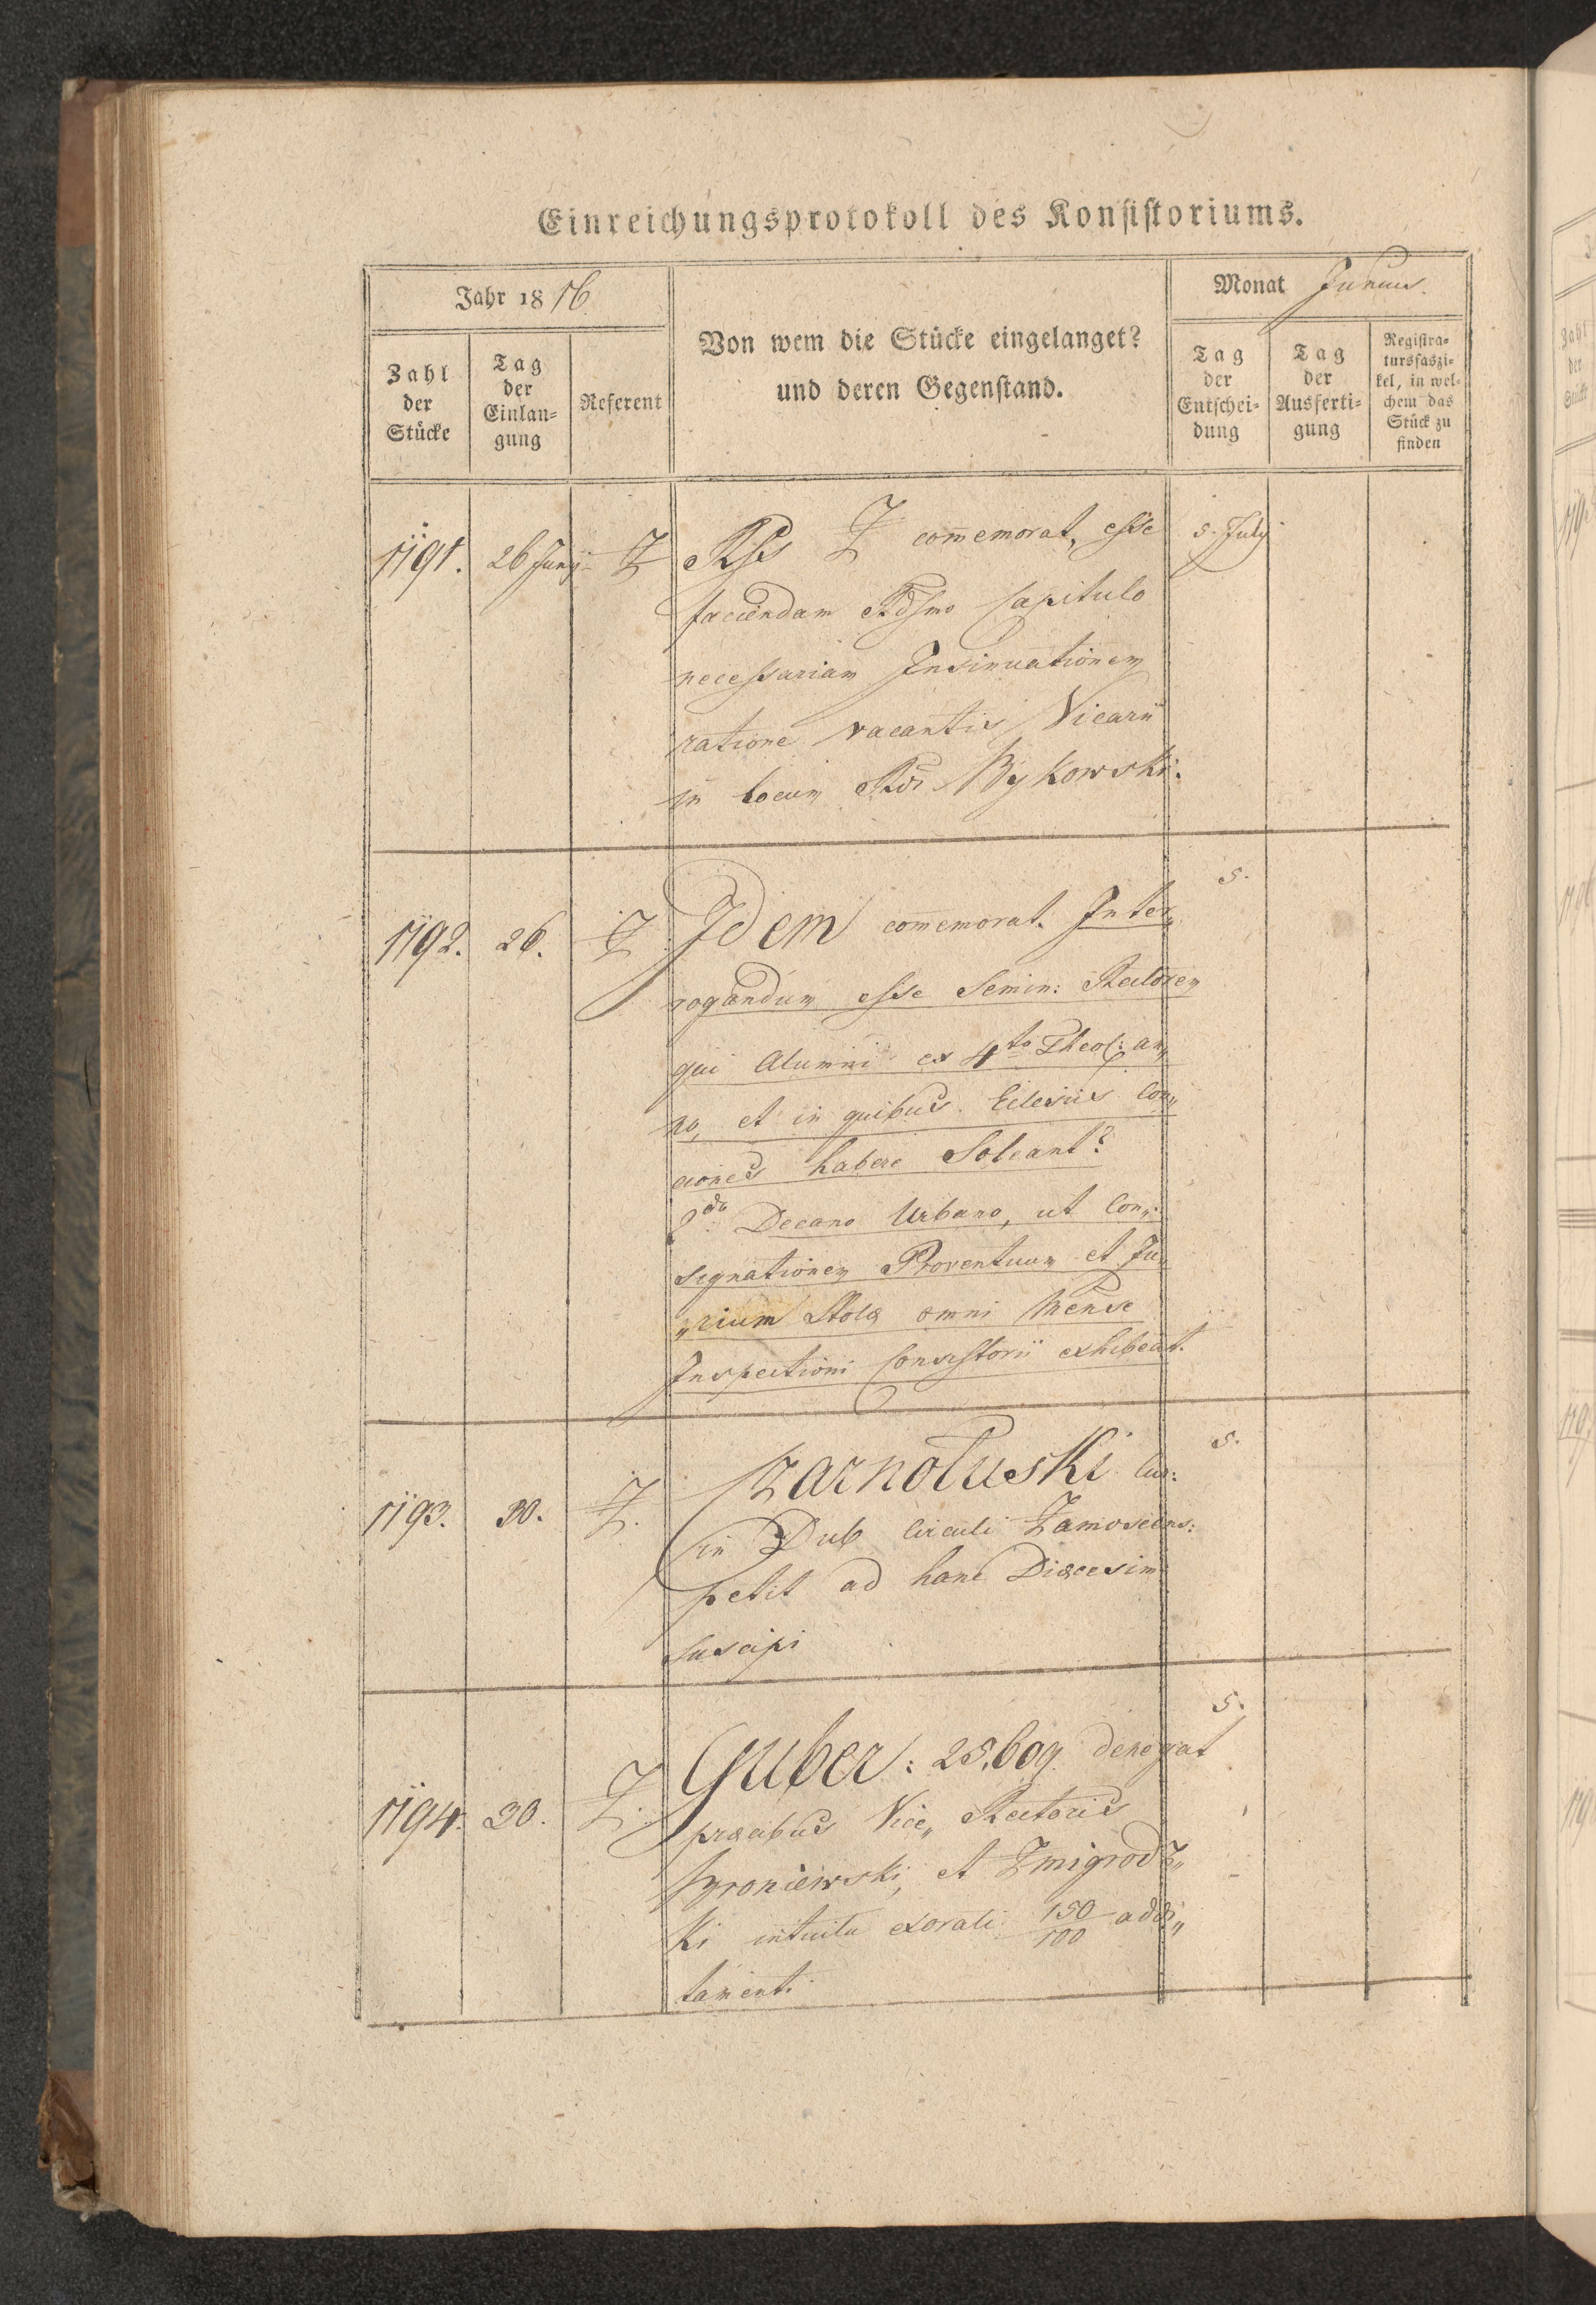 Einreichungsprotokoll des Konsistoriums.
Jahr 1816.
Monat Junius.
Zahl der Stücke
Tag der Einlan-gung
Referent
Von wem die Stücke eingelanget?
und deren Gegenstand.
Tag der Entschei-dung
Tag der Ausferti-gung
Registra-tursfaszi-kel, in wel-chem das Stück zu finden
1191. 26 Junÿ Z Rfs Z com̄emorat, esse 5. July
faciendam Rdſmo Capitulo
necessariam Insinuationem
ratione vacantis Vicarii
in locum Rdi Bykowski.
1192. 26. Z. Idem com̄emorat. Inter„ 5.
rogandum esse Semin: Rectorem
qui Alumni ex 4to Theol: an„
no, et in quibus Eclesiis Con„
ciones habere Soleant?
2do Decano Urbano, ut Con„
signationem Proventuum et Ju„
„rium Stolæ omni Mense
Inspectioni Consistorii exhibeat.
1193. 30. Z. Czarnotuski Cur: 5.
in Dub Circuli Zamosciens:
petit ad hanc Diæcesim
suscipi
1194. 30. Z. Guber: 25,609. denegat 5.
præcibus Vice„ Rectoris
Hyroniewski, et Zmigrodz„
ki intuitu exorati 150/100 addi„
tamenti